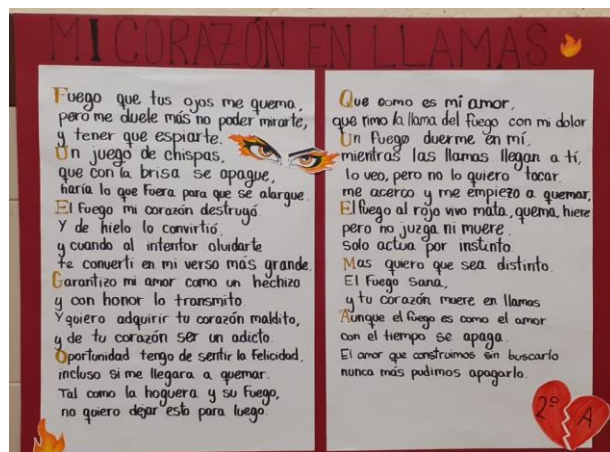 MI CORAZÓN EN LLAMAS
Fuego que tus ojos me quema,
pero me duele más no poder mirarte,
y tener que espiarte.
Un juego de chispas,
que con la brisa se apague,
haría lo que fuera para que se alargue.
El fuego mi corazón destruyó.
Y de hielo lo convirtió.
y cuando al intentar olvidarte
te converti en mi verso más grande.
Garantizo mi amor como un hechizo
y con honor lo transmito.
Y quiero adquirir tu corazón maldito,
y de tu corazón ser un adicto.
Oportunidad tengo de sentir la felicidad,
incluso si me llegara a quemar.
Tal como la hoguera y su fuego,
no quiero dejar esto para luego.
Que como es mi amor,
que rimo la llama del fuego con mi dolor
Un fuego duerme en mí,
mientras las llamas llegan a tí,
lo veo, pero no lo quiero tocar.
me acerco y me empiezo a quemar,
El fuego al rojo vivo mata, quema, hiere
pero no juzga ni muere.
Solo actua por instinto.
Mas quiero que sea distinto.
El fuego sana,
y tu corazón muere en llamas
Aunque el fuego es como el amor
con el tiempo se apaga.
El amor que construimos sin buscarlo
nunca más pudimos apagarlo.
2º A